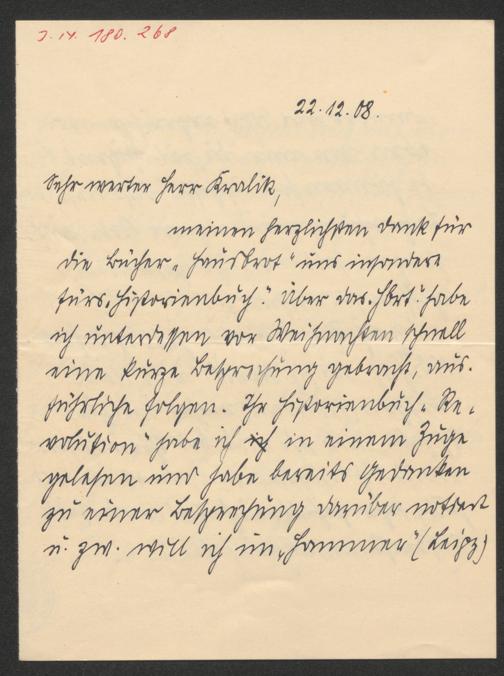 22.12.08.
Sehr werter Herr Kralik,
meinen herzlichsten Dank für
die Bücher „Hausbrot“ und insondere
fürs „Historienbuch“. Über das habe
ich unterdessen vor Weihnachten schnell
eine kurze Besprechung gebracht, aus-
führliche folgen. Ihr Historienbuch „Re-
volution“ habe ich in einem Zuge
gelesen und habe bereits Gedanken
zu einer Besprechung darüber notiert
u. zw. will ich im „Hammer“ (Leipz)